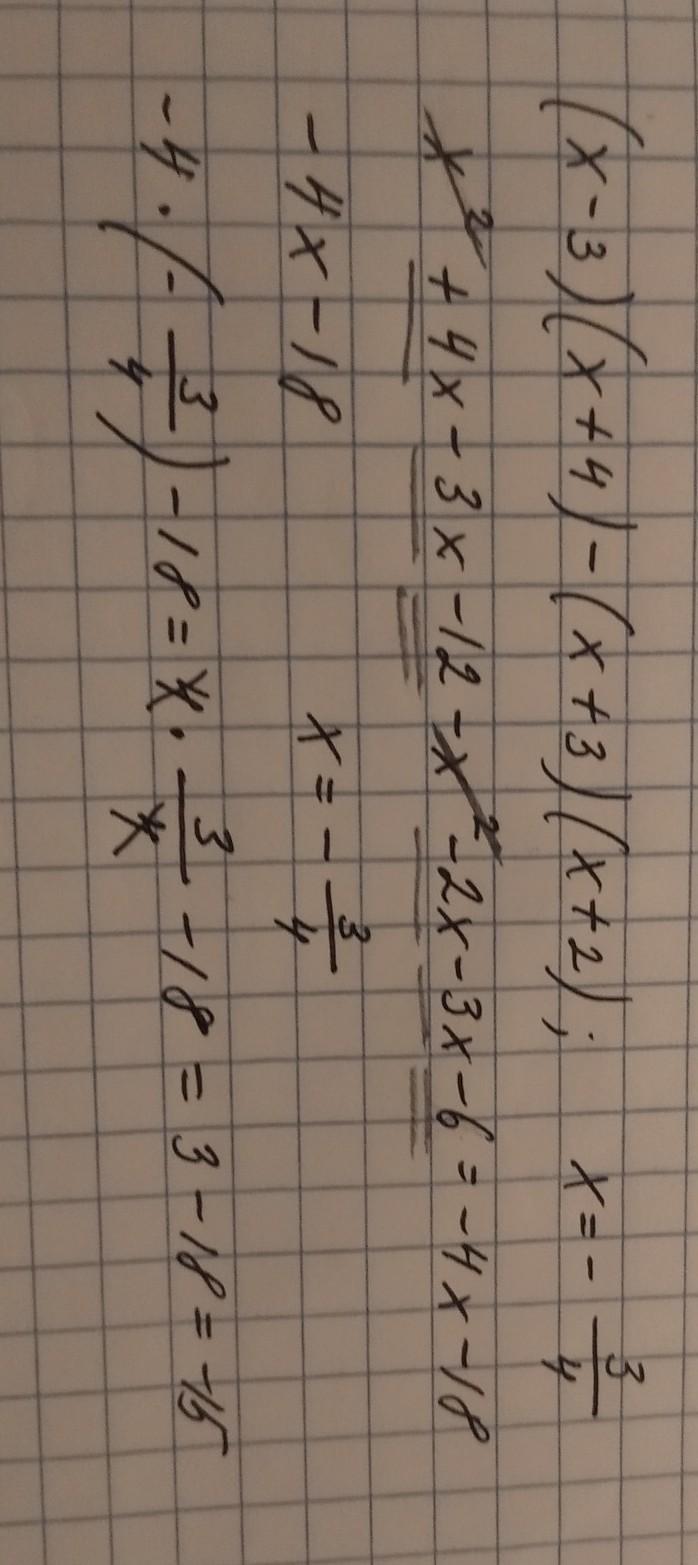 (x-3)(x+4)-(x+3)(x+2); x=-3/4
x²+4x-3x-12-x²-2x-3x-6=-4x-18
-4x-18 x=-3/4
-4·(-3/4)-18=4·3/4-18=3-18=-15